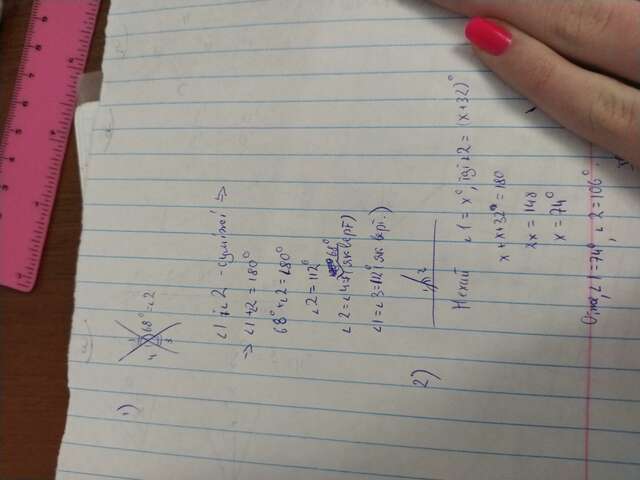 1)
1 68° = ∠2
4 3
∠1 і ∠2 - суміжні =>
=> ∠1 + ∠2 = 180°
68° + ∠2 = 180°
∠2 = 112°
∠2 = ∠4 = (як верт)
∠1 = ∠3 = 112° як верт.)
2)
1 2
Нехай ∠1 = x°, тоді ∠2 = (x+32)°
x + x + 32° = 180
2x = 148
x = 74°
Отже, ∠1 = 74°, ∠2 = 106°.